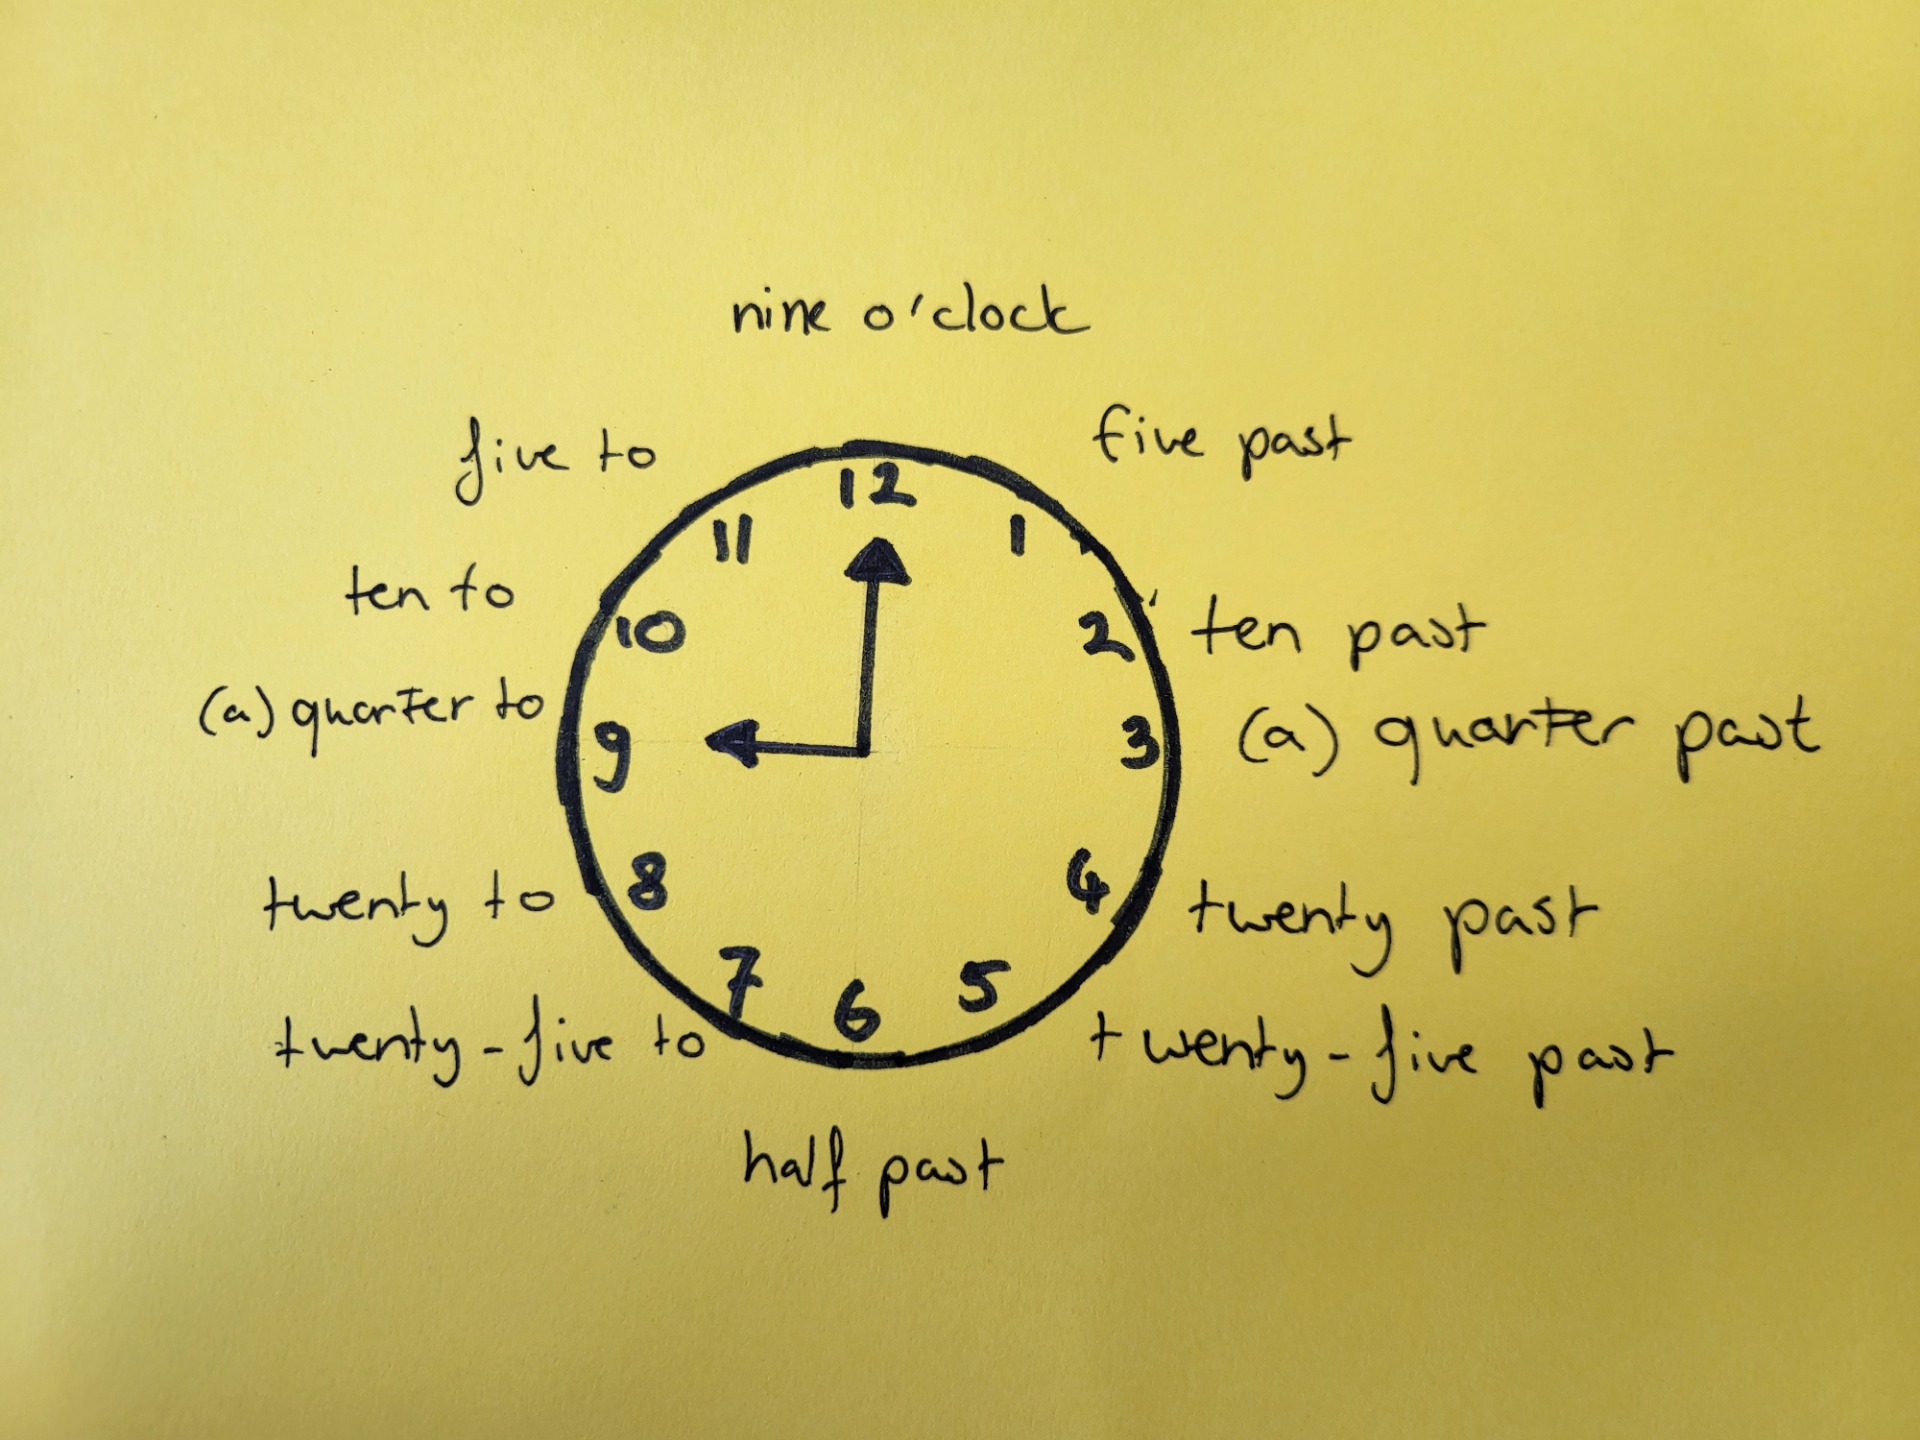 nine o'clock
five to
five past
12
11
1
ten to
10
2
ten past
(a) quarter to
9
3
(a) quarter past
twenty to
8
4
twenty past
7
5
6
twenty-five to
twenty-five past
half past